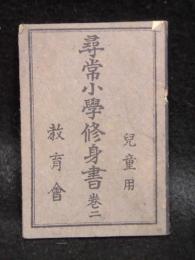 兒童用
尋常小學修身書 卷二
敎育會